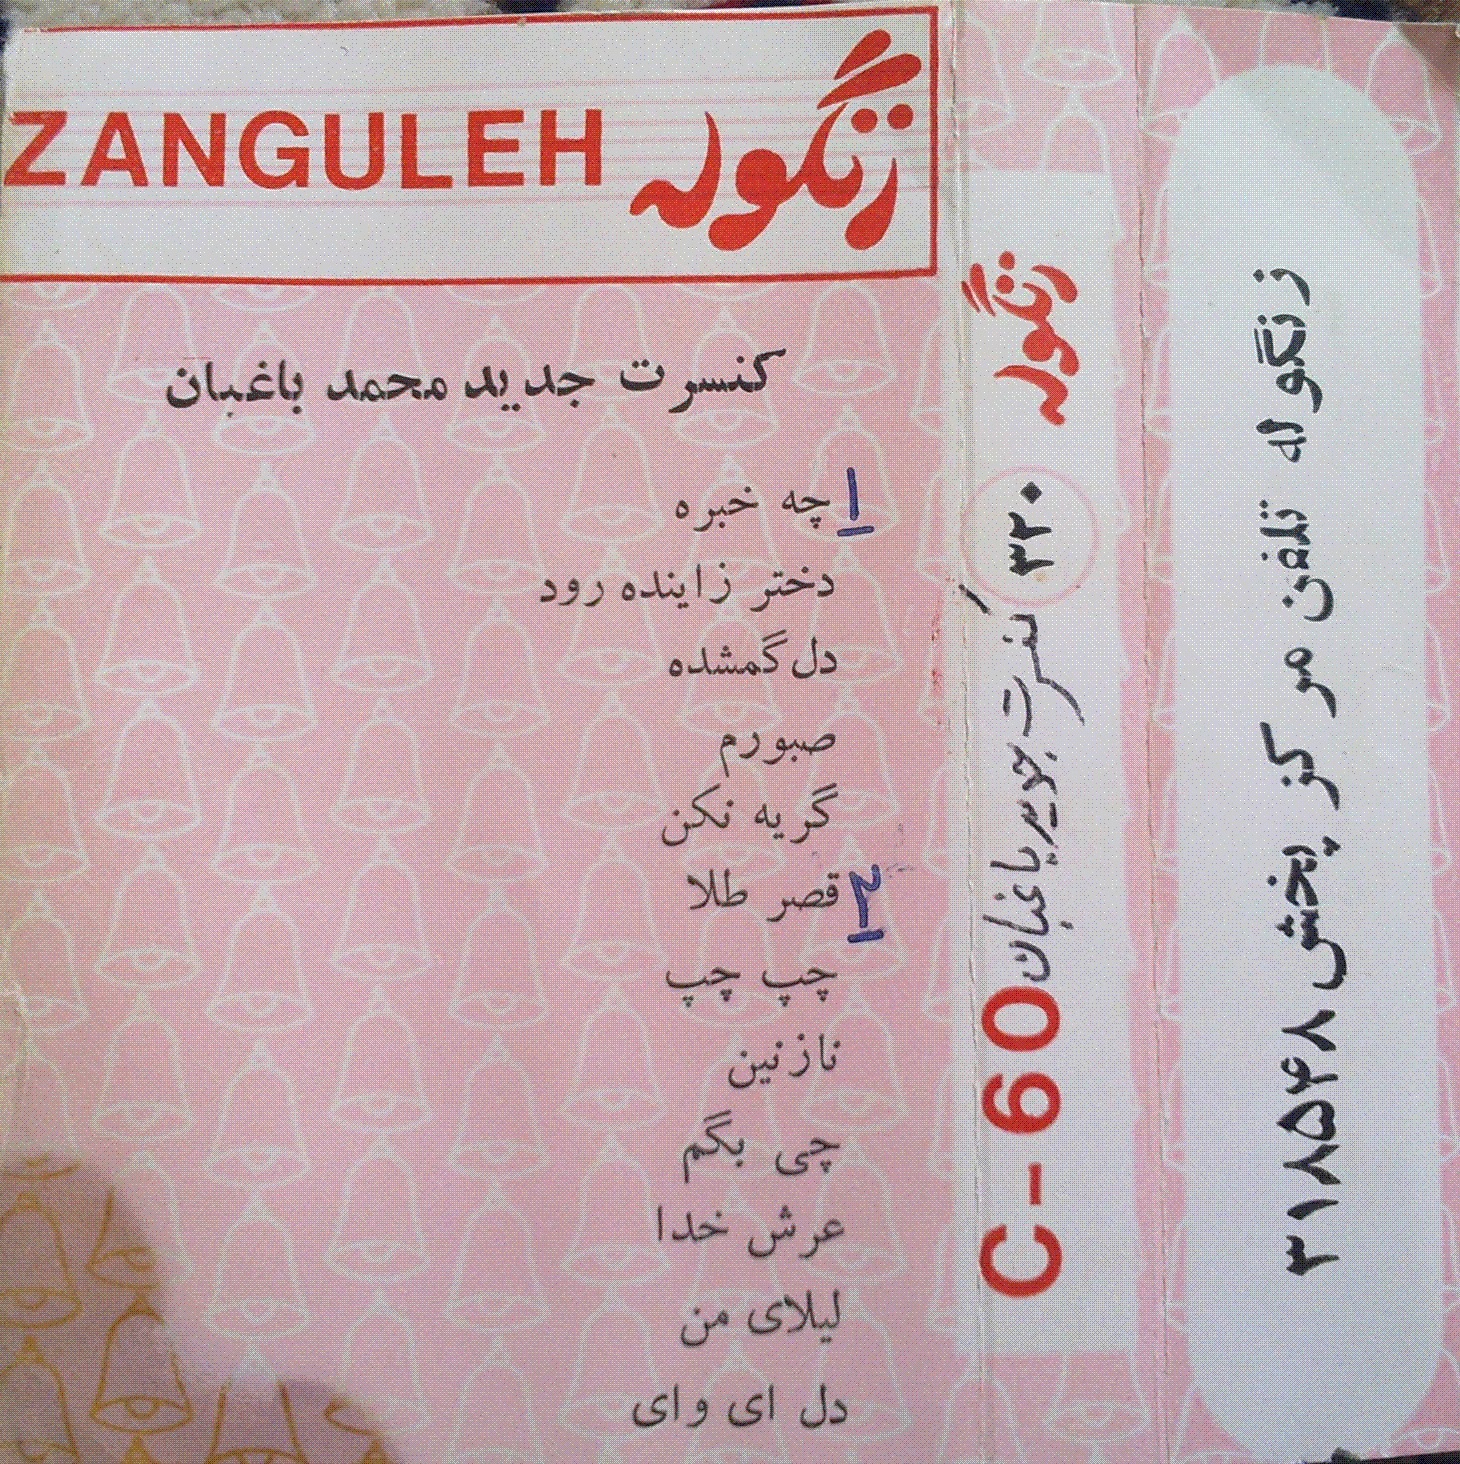 ZANGULEH زنگوله
کنسرت جدید محمد باغبان
۱ چه خبره
دختر زاینده رود
دل گمشده
صبورم
گریه نکن
۲ قصر طلا
چپ چپ
نازنین
چی بگم
عرش خدا
لیلای من
دل ای وای
زنگوله ۳۲۰ کنسرت جدید باغبان C-60
زنگوله تلفن مرکز پخش ۳۱۸۵۴۸